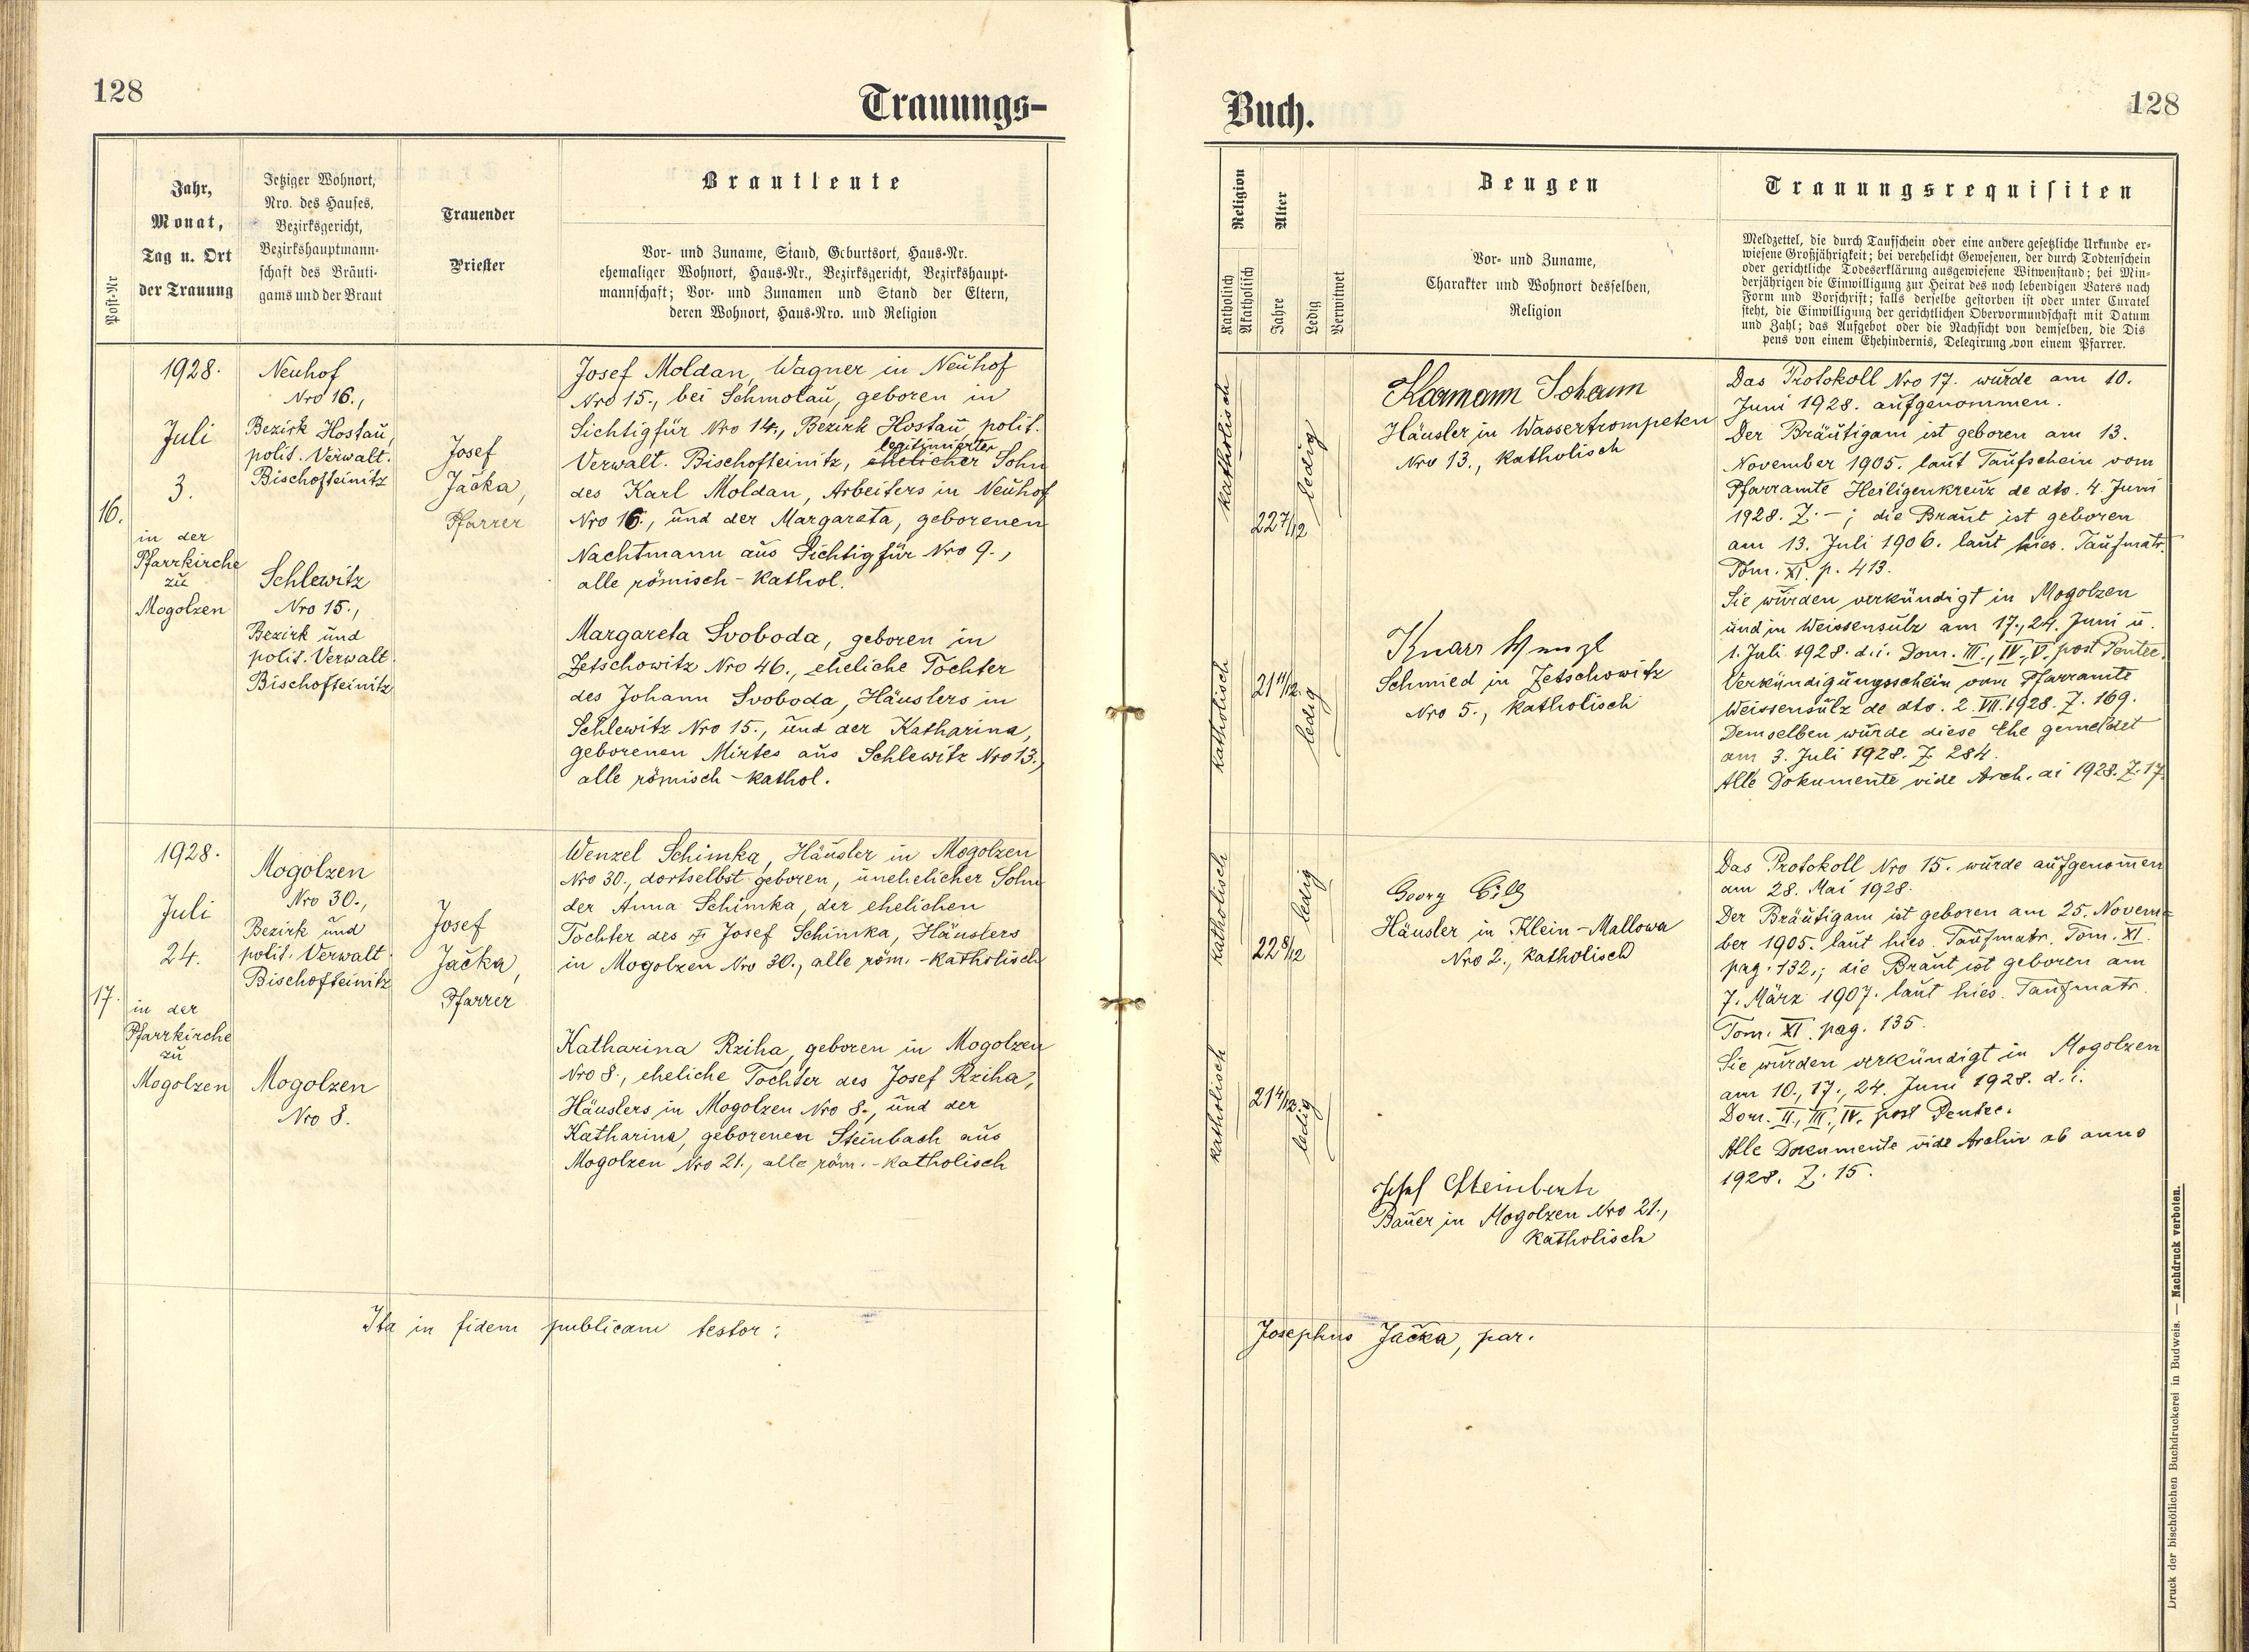 128
Trauungs-
Post-Nr
Jahr,
Monat,
Tag u. Ort
der Trauung
Jetziger Wohnort,
Nro. des Hauses,
Bezirksgericht,
Bezirkshauptmann-
schaft des Bräuti-
gams und der Braut
Trauender
Priester
Brautleute
Vor- und Zuname, Stand, Geburtsort, Haus-Nr.
ehemaliger Wohnort, Haus-Nr., Bezirksgericht, Bezirkshaupt-
mannschaft; Vor- und Zunamen und Stand der Eltern,
deren Wohnort, Haus-Nro. und Religion
16.
1928.
Juli
3.
in der
Pfarrkirche
zu
Mogolzen
Neuhof
Nro 16.,
Bezirk Hostau,
polit. Verwalt.
Bischofteinitz
Schlewitz
Nro 15.,
Bezirk und
polit. Verwalt.
Bischofteinitz
Josef
Jačka,
Pfarrer
Josef Moldan, Wagner in Neuhof
Nro 15., bei Schmolau, geboren in
Sichtigfür Nro 14., Bezirk Hostau, polit.
legitimierter
Verwalt. Bischofteinitz, ehelicher Sohn
des Karl Moldan, Arbeiters in Neuhof
Nro 16., und der Margareta, geborenen
Nachtmann aus Sichtigfür Nro 9.,
alle römisch-kathol.
Margareta Svoboda, geboren in
Zetschowitz Nro 46., eheliche Tochter
des Johann Svoboda, Häuslers in
Schlewitz Nro 15., und der Katharina,
geborenen Mirtes aus Schlewitz Nro 13.,
alle römisch-kathol.
17.
1928.
Juli
24.
in der
Pfarrkirche
zu
Mogolzen
Mogolzen
Nro 30.,
Bezirk und
polit. Verwalt.
Bischofteinitz
Mogolzen
Nro 8.
Josef
Jačka,
Pfarrer
Wenzel Schimka, Häusler in Mogolzen
Nro 30., dortselbst geboren, unehelicher Sohn
der Anna Schimka, der ehelichen
Tochter des Josef Schimka, Häuslers
in Mogolzen Nro 30., alle röm.-katholisch
Katharina Rziha, geboren in Mogolzen
Nro 8., eheliche Tochter des Josef Rziha,
Häuslers in Mogolzen Nro 8., und der
Katharina, geborenen Steinbach aus
Mogolzen Nro 21., alle röm.-katholisch
Ita in fidem publicam testor:
Buch.
128
Religion
Katholisch
Akatholisch
Alter
Jahre
Ledig
Verwitwet
Zeugen
Vor- und Zuname,
Charakter und Wohnort desselben,
Religion
Trauungsrequisiten
Meldzettel, die durch Taufschein oder eine andere gesetzliche Urkunde er-
wiesene Großjährigkeit; bei verehelicht Gewesenen, der durch Todtenschein
oder gerichtliche Todeserklärung ausgewiesene Witwenstand; bei Min-
derjährigen die Einwilligung zur Heirat des noch lebendigen Vaters nach
Form und Vorschrift; falls derselbe gestorben ist oder unter Curatel
steht, die Einwilligung der gerichtlichen Obervormundschaft mit Datum
und Zahl; das Aufgebot oder die Nachsicht von demselben, die Dis
pens von einem Ehehindernis, Delegirung von einem Pfarrer.
katholisch
22 7/12
ledig
katholisch
21 11/12
ledig
Johann
Häusler in Wassertrompeten
Nro 13., katholisch
Knarr
Schmied in Zetschowitz
Nro 5., katholisch
Das Protokoll Nro 17. wurde am 10.
Juni 1928. aufgenommen.
Der Bräutigam ist geboren am 13.
November 1905. laut Taufschein vom
Pfarramte Heiligenkreuz de dto. 4. Juni
1928. Z. -; die Braut ist geboren
am 13. Juli 1906. laut hies. Taufmatr.
Tom. XI. p. 413.
Sie wurden verkündigt in Mogolzen
und in Weissensulz am 17., 24. Juni u.
1. Juli 1928. d. i. Dom. III., IV., V. post Pentec.
Verkündigungsschein vom Pfarramte
Weissensulz de dto. 2. VII. 1928. Z. 169.
Demselben wurde diese Ehe gemeldet
am 3. Juli 1928. Z. 284.
Alle Dokumente vide Arch. ai 1928. Z. 17.
katholisch
22 8/12
ledig
katholisch
21 4/12
ledig
Georg
Häusler in Klein-Mallowa
Nro 2., katholisch
Josef Steinbach
Bauer in Mogolzen Nro 21.,
katholisch
Das Protokoll Nro 15. wurde aufgenomen
am 28. Mai 1928.
Der Bräutigam ist geboren am 25. Novem=
ber 1905. laut hies. Taufmatr. Tom. XI.
pag. 132.; die Braut ist geboren am
7. März 1907. laut hies. Taufmatr.
Tom. XI. pag. 135.
Sie wurden verkündigt in Mogolzen
am 10., 17., 24. Juni 1928. d. i.
Dom. II., III., IV. post Pentec.
Alle Documente vide Archiv ab anno
1928. Z. 15.
Josephus Jačka, par.
Druck der bischöflichen Buchdruckerei in Budweis. — Nachdruck verboten.